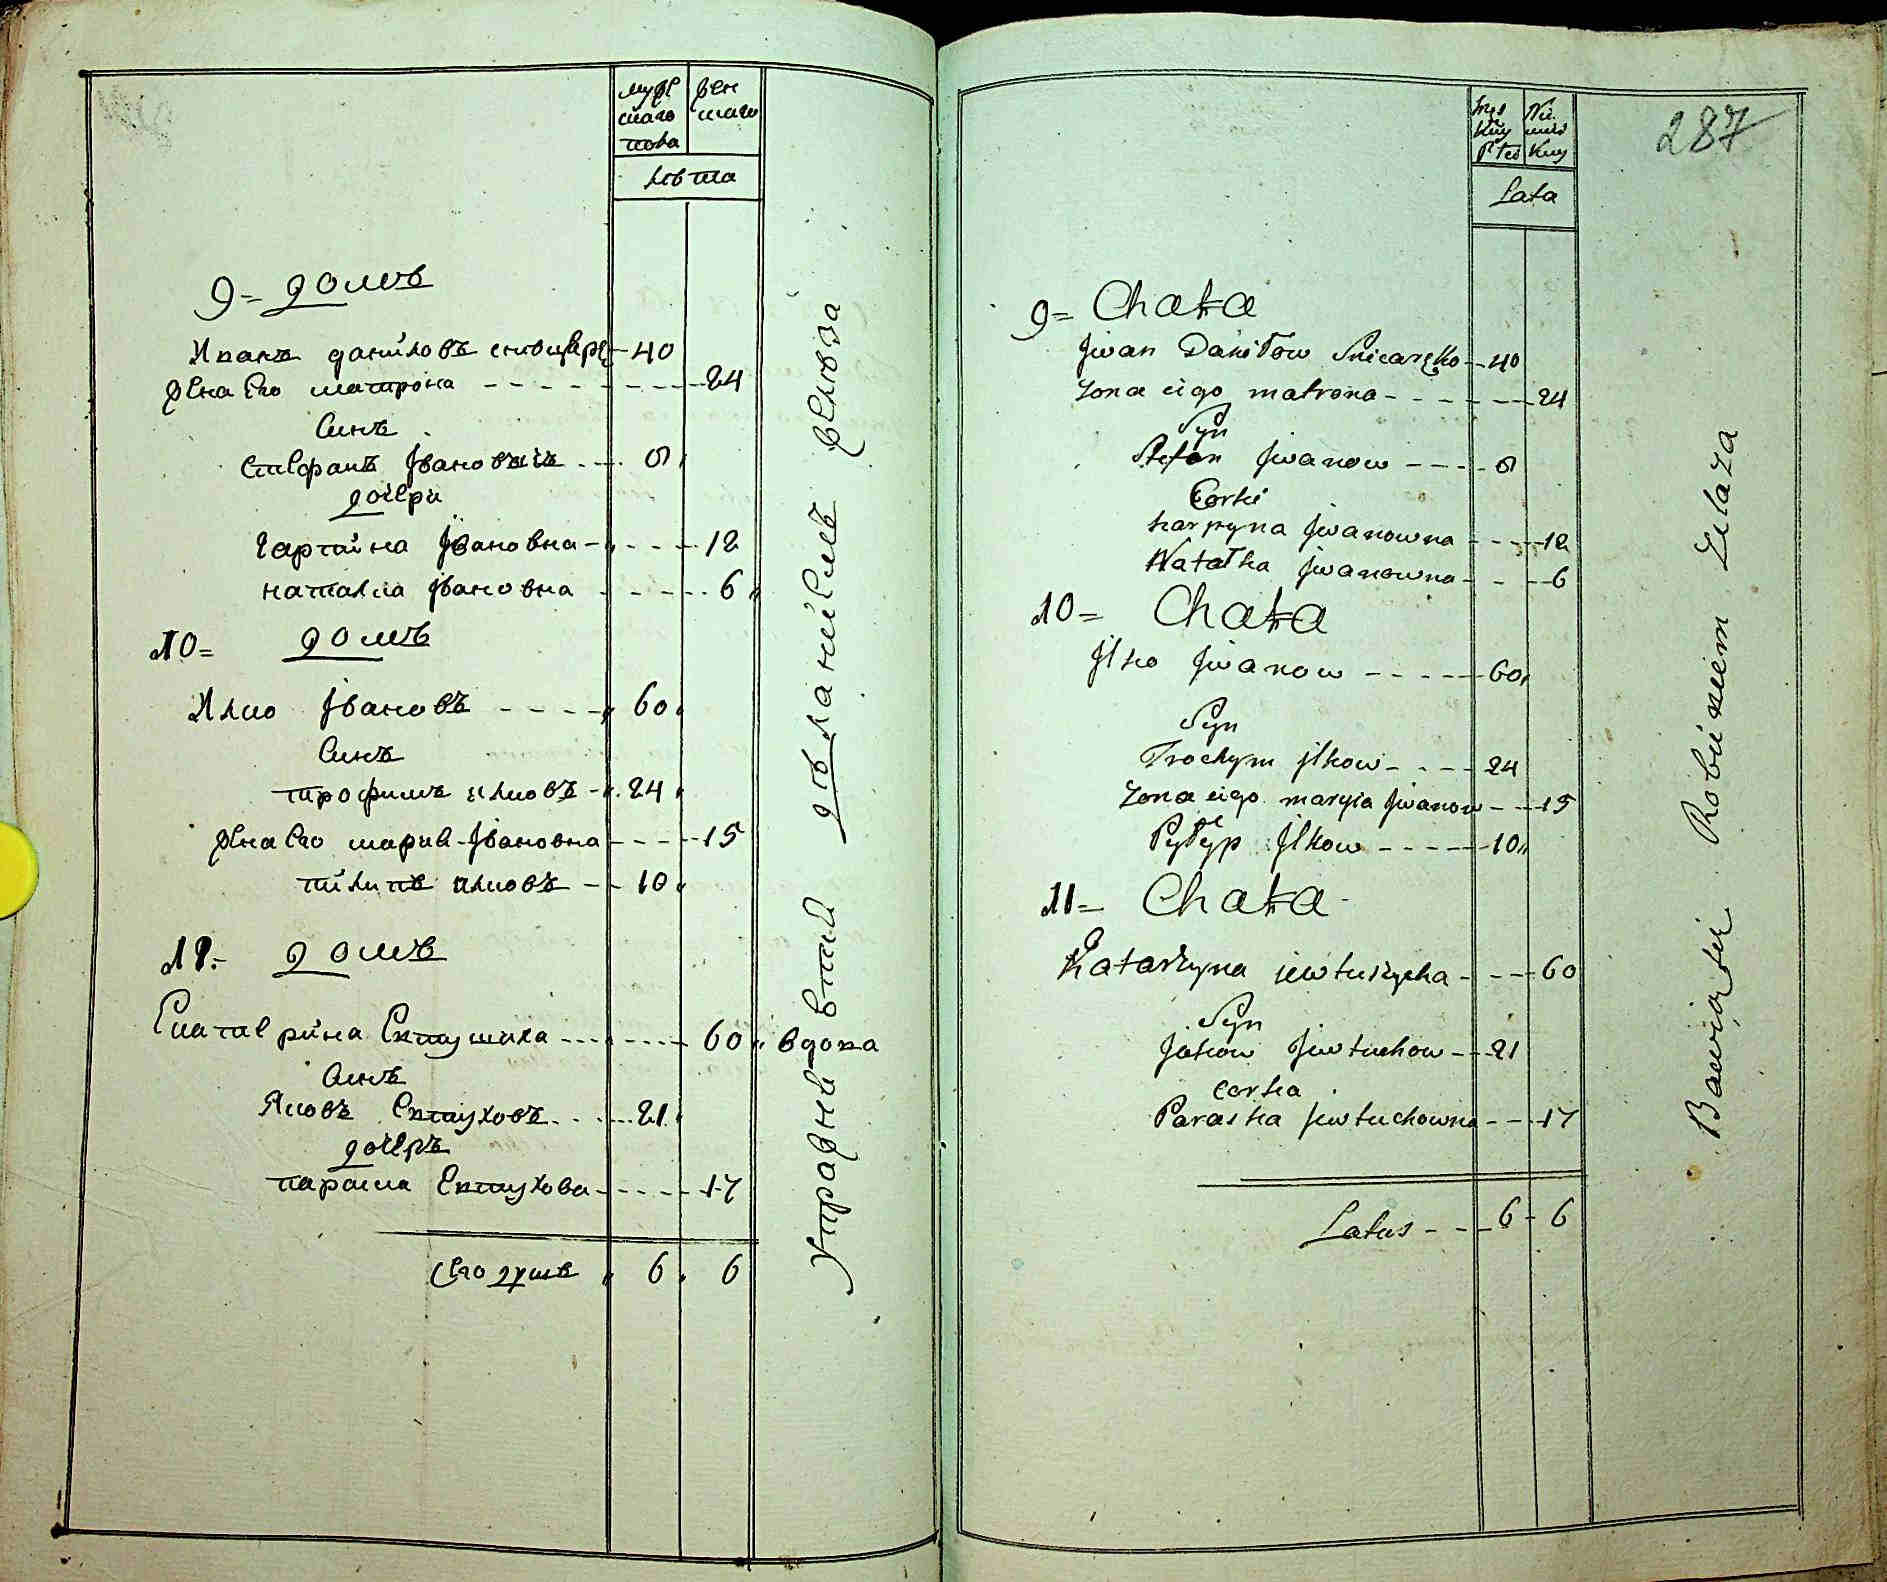 мужескаго пола
женскаго
лѣта
9= домъ
Иванъ даниловъ 40
жена его матрона 24
Синъ
Стефанъ Івановъ 8
дочери
Гарпина Івановна 12
наталка Івановна 6
10= домъ
Илко Івановъ 60
Синъ
трофимъ илковъ 24
жена его мария Івановна 15
пилипъ илковъ 10
11. домъ
Екатерина Євтушиха 60 вдова
Синъ
Яковъ Євтуховъ 21
дочеръ
параска Євтухова 17
Его душъ 6 6
Упражняется дѣланиемъ желѣза
287
Męs kiey Płci
Nie wies kiey
Lata
9= Chata
Jwan Daniłow 40
Zona eigo matrona 24
Syn
Stefan Jwanow 8
Corki
harpyna Jwanowna 12
Natałka Jwanowna 6
10= Chata
Jlko Jwanow 60
Syn
Trochym jlkow 24
Zona eigo maryia Jwanow 15
Pyłyp Jlkow 10
11= Chata
Katarzyna iewtuszycha 60
Syn
Jakow Jewtuchow 21
corka
Paraska Jewtuchowna 17
Latus 6 6
Bawią się Robieniem Zelaza